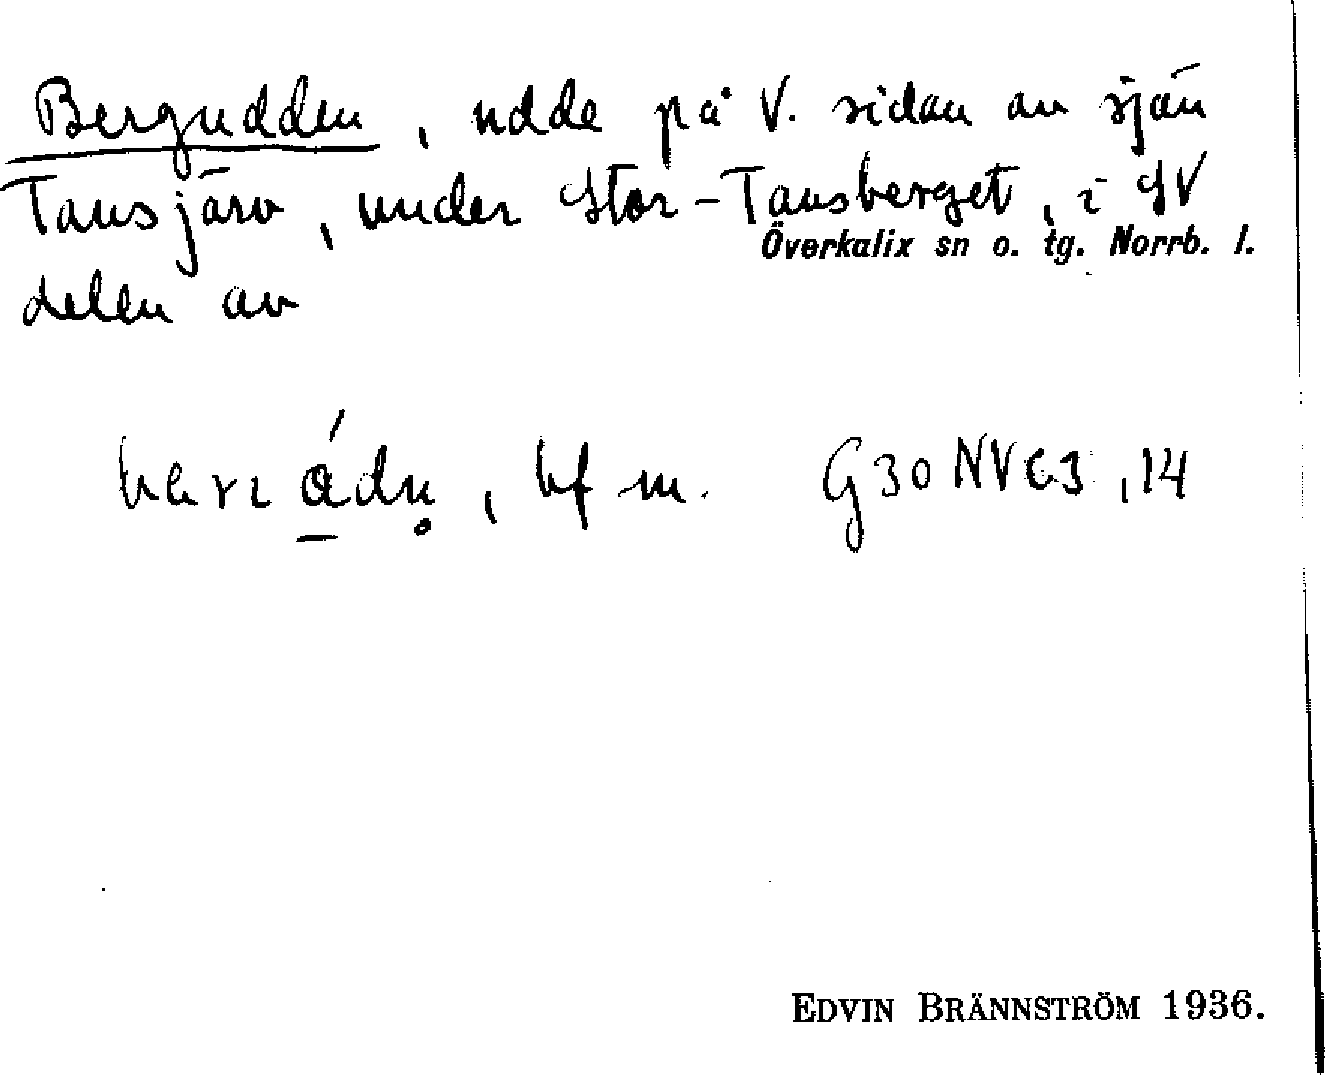 Bergudden, udde på V. sidan av sjön
Tansjärv, under Stor-Tansberget, i SV
Överkalix sn o. tg. Norrb. l.
delen av
bf m. G30 NV63, 14
EDVIN BRÄNNSTRÖM 1936.